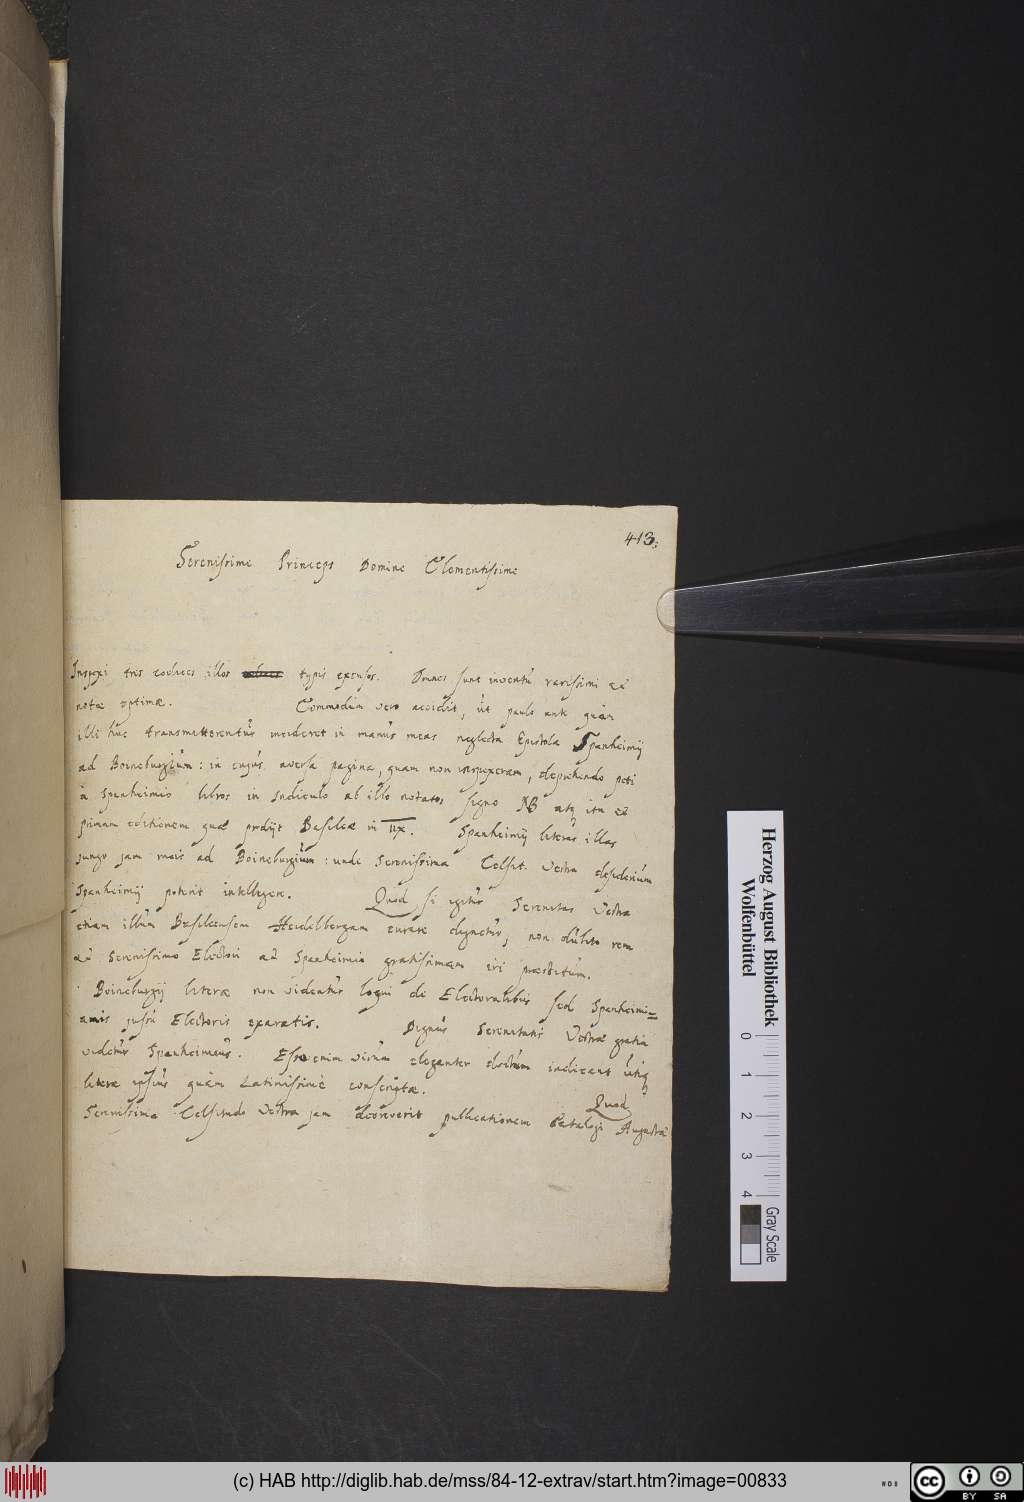 413.
Serenissime Princeps Domine Clementissime
Inspexi tres codices illos typis excusos. Omnes sunt inventu rarissimi et
notæ optimæ. Commodum vero accidit, ut paulo ante quàm
illi huc transmitterentur incideret in manus meas neglecta Epistola Spanheimij
ad Boineburgium: in cujus aversa pagina, quam non inspexeram, deprehendo peti
à Spanheimio libros in Indiculo ab illo notatos signo NB atq ita et
primam editionem quæ prodijt Basileæ in
Spanheimij literas illas
jungo jam meis ad Boineburgium: unde Serenissima Celsit. Vestra desiderium
Spanheimij poterit intelligere. Quod si igitur Serenitas Vestra
etiam illum Basileensem Heidelbergam curare dignetur, non dubito rem
et Serenissimo Electori et Spanheimio gratissimam iri præstitum.
Boineburgij literæ non videntur loqui de Electoralibus sed Spanheimi=
anis jussu Electoris exaratis. Dignus Serenitatis Vestræ gratia
videtur Spanheimius. Esse enim virum eleganter doctum indicant utiq
literæ ipsius quàm Latinissimè conscriptæ.
Quod
Serenissima Celsitudo Vestra jam decreverit publicationem Catalogi Augustæ
Herzog August Bibliothek
Wolfenbüttel
0 1 2 3 4
Gray Scale
(c) HAB http://diglib.hab.de/mss/84-12-extrav/start.htm?image=00833
cc BY SA